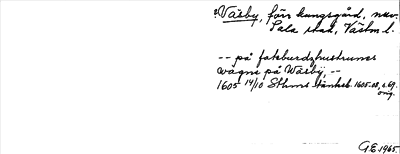 ?Väsby, förr kungsgård, nuv.
Sala stad, Västm l.
-- på fateburdzhustruns
wägne på Wäsbÿ, --
1605 14/10 Sthms tänkeb. 1605-08, s. 69.
orig.
GE 1965.